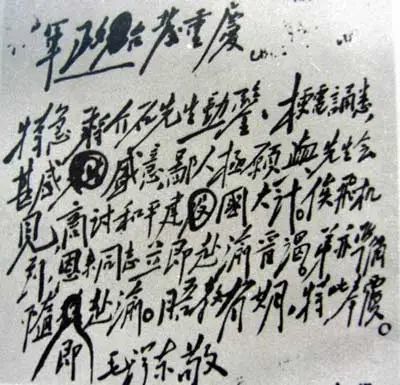 軍政台发重慶
特急 蒋介石先生勛鑒、梗電誦悉,
甚感盛意。鄙人極願與先生会
見,商讨和平建國大计。俟飛机
到,恩来同志立即赴渝晋謁。弟亦準備
随即赴渝。晤教有期,特此奉復。
毛泽东敬